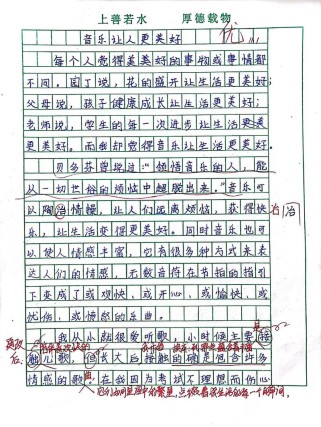 上善若水 厚德载物
音乐让人更美好
优
每个人觉得美美好的事物或事情都
不同。园丁说,花的盛开让生活更美好;
父母说,孩子健康成长让生活更美好;
老师说,学生的每一次进步让生活更美
更美好。而我却觉得音乐让生活更美好。
贝多芬曾说过:“领悟音乐的人,能
从一切世俗的烦恼中超脱出来。”音乐可
以陶冶情操,让人们远离烦恼,获得快 冶
乐,让生活变得更美好。同时音乐也可
以使人情感丰富,它有很多种方式来表
达人们的情感,无数音符在节拍的指引
下变成了或欢快、或开心、或愉快、或
忧伤、或愤怒的乐曲。
我从小就很爱听歌,小时候主要接
触儿歌,但长大后接触的确是包含许多
情感的歌曲。在我因为考试不理想而伤心